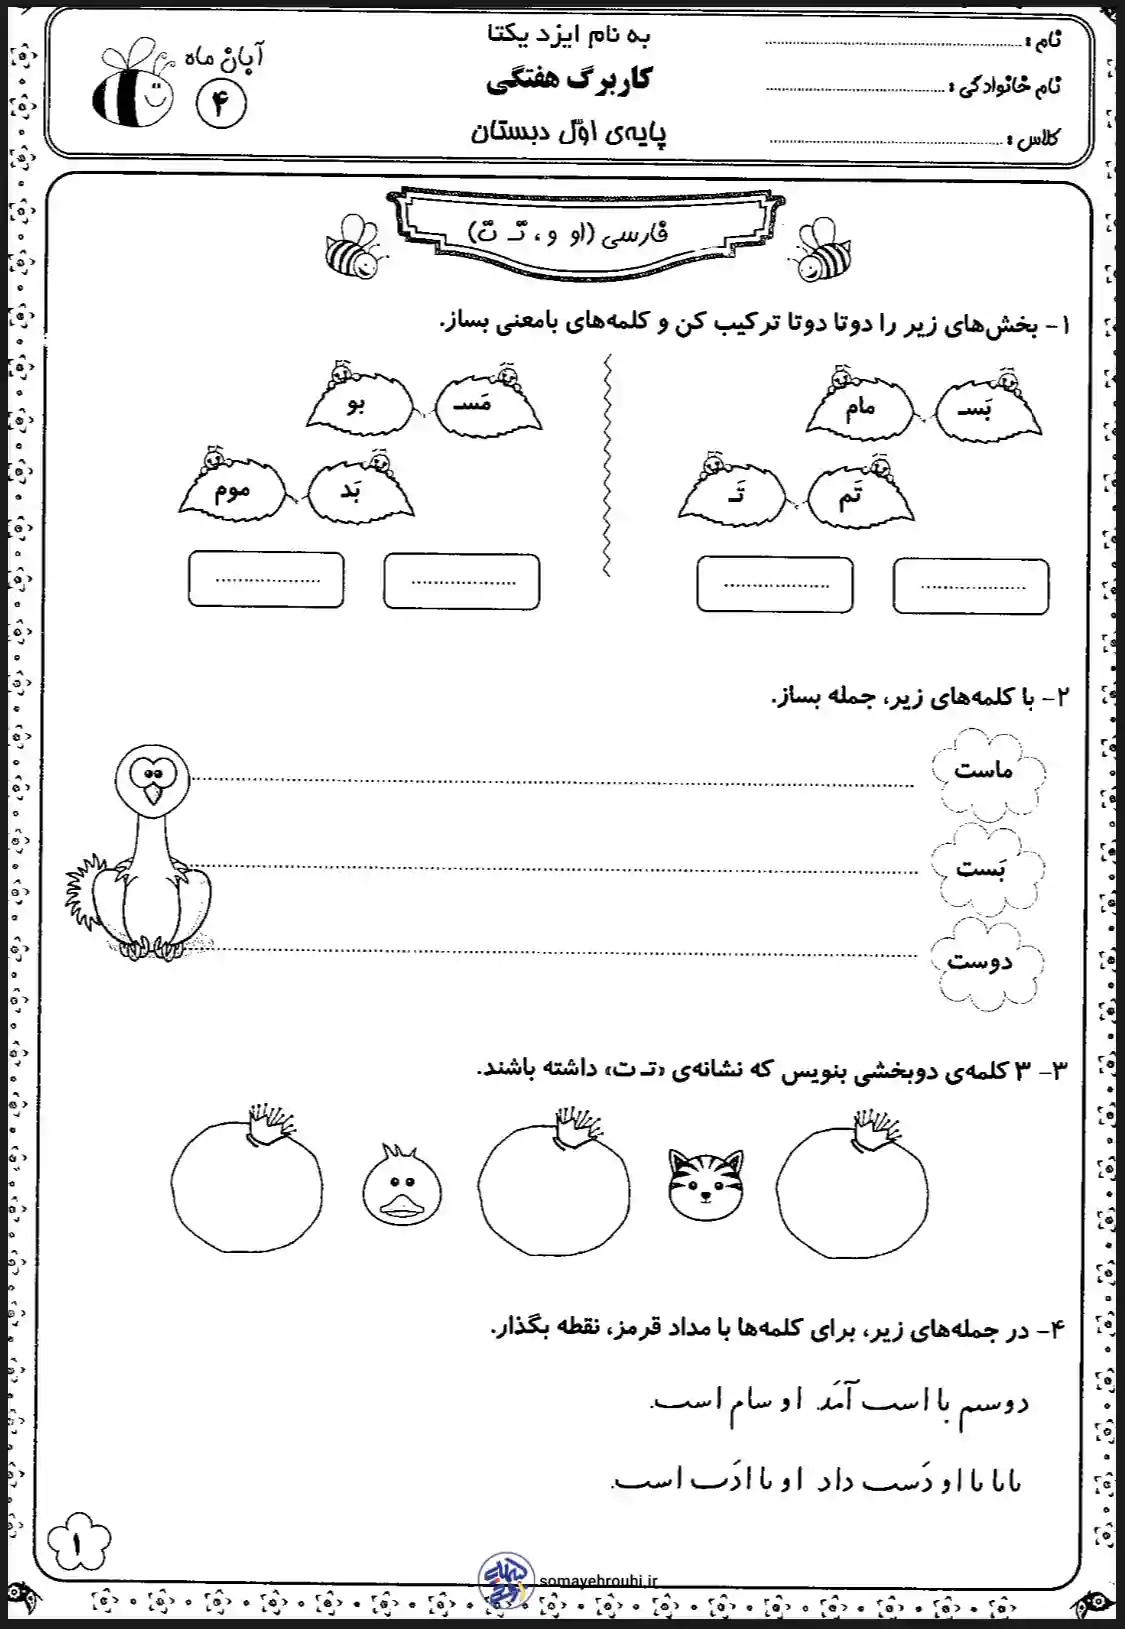 نام :
به نام ایزد یکتا
آبان ماه
نام خانوادگی :
کاربرگ هفتگی
۴
کلاس :
پایه‌ی اوّل دبستان
فارسی (او و ، تـ ت)
۱- بخش‌های زیر را دوتا دوتا ترکیب کن و کلمه‌های بامعنی بساز.
بَسـ مام مَسـ بو
تَم تَـ بَد موم
۲- با کلمه‌های زیر، جمله بساز.
ماست
بَست
دوست
۳- ۳ کلمه‌ی دوبخشی بنویس که نشانه‌ی «تـ ت» داشته باشند.
۴- در جمله‌های زیر، برای کلمه‌ها با مداد قرمز، نقطه بگذار.
دوسٮم با اسٮ آمَد. او سام اسٮ.
ٮاٮا ٮا او دَسٮ داد. او ٮا ادَٮ اسٮ.
۱
somayehrouhi.ir